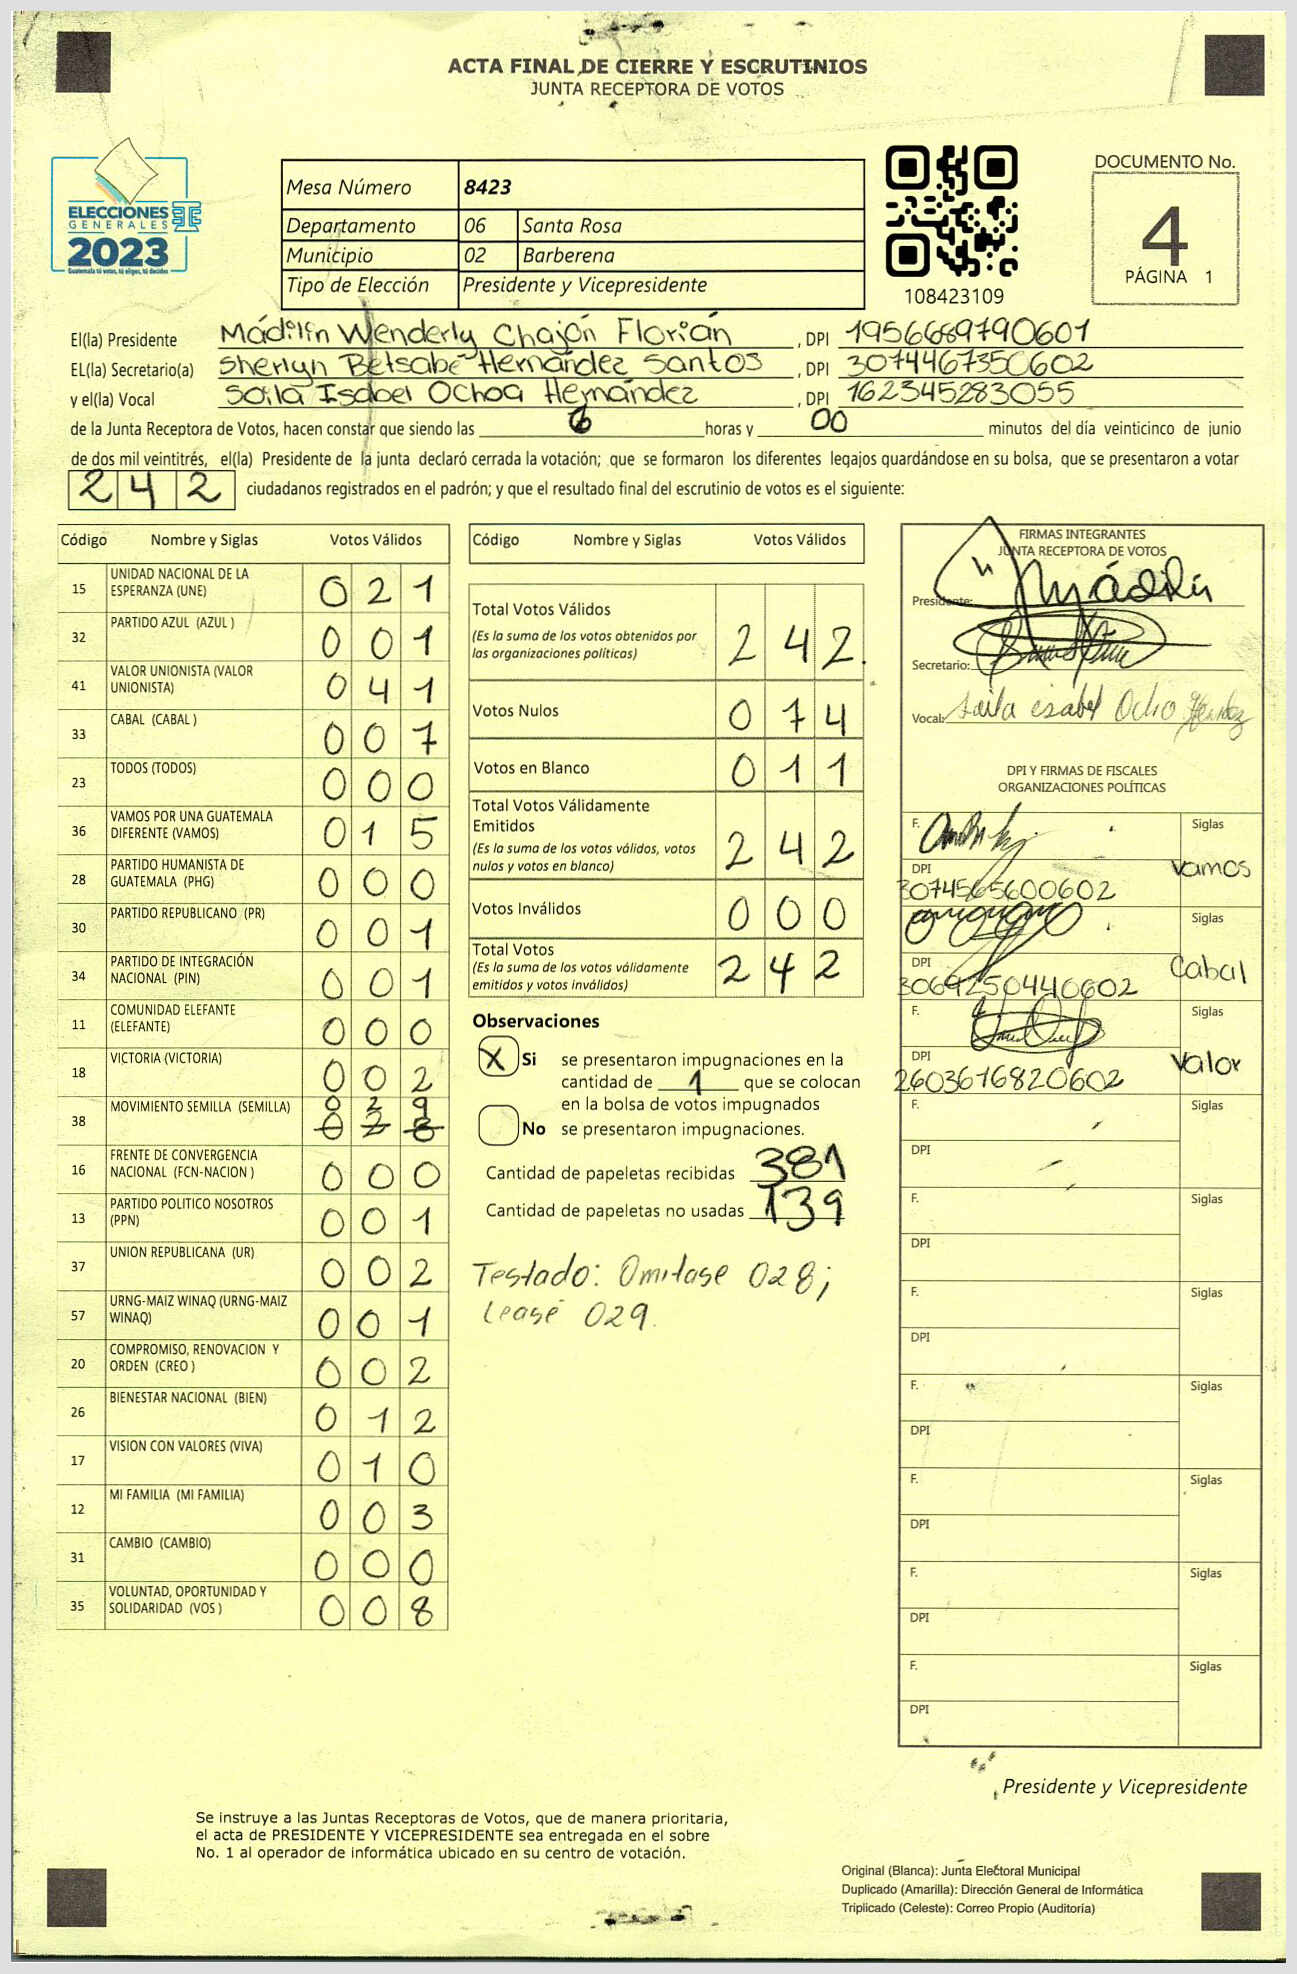 ACTA FINAL DE CIERRE Y ESCRUTINIOS
JUNTA RECEPTORA DE VOTOS
ELECCIONES
GENERALES
2023
Guatemala tú votas, tú eliges, tú decides
Mesa Número 8423
Departamento 06 Santa Rosa
Municipio 02 Barberena
Tipo de Elección Presidente y Vicepresidente
108423109
DOCUMENTO No.
4
PÁGINA 1
El(la) Presidente Mádilin Wenderly Chajón Florián , DPI 1956689790601
EL(la) Secretario(a) Sherlyn Betsabé Hernández Santos , DPI 3074467350602
y el(la) Vocal Soila Isabel Ochoa Hernández , DPI 162345283055
de la Junta Receptora de Votos, hacen constar que siendo las 6 horas y 00 minutos del día veinticinco de junio
de dos mil veintitrés, el(la) Presidente de la junta declaró cerrada la votación; que se formaron los diferentes legajos quardándose en su bolsa, que se presentaron a votar
242 ciudadanos registrados en el padrón; y que el resultado final del escrutinio de votos es el siguiente:
Código Nombre y Siglas Votos Válidos
15 UNIDAD NACIONAL DE LA ESPERANZA (UNE) 021
32 PARTIDO AZUL (AZUL ) 001
41 VALOR UNIONISTA (VALOR UNIONISTA) 041
33 CABAL (CABAL ) 007
23 TODOS (TODOS) 000
36 VAMOS POR UNA GUATEMALA DIFERENTE (VAMOS) 015
28 PARTIDO HUMANISTA DE GUATEMALA (PHG) 000
30 PARTIDO REPUBLICANO (PR) 001
34 PARTIDO DE INTEGRACIÓN NACIONAL (PIN) 001
11 COMUNIDAD ELEFANTE (ELEFANTE) 000
18 VICTORIA (VICTORIA) 002
38 MOVIMIENTO SEMILLA (SEMILLA) 029 028
16 FRENTE DE CONVERGENCIA NACIONAL (FCN-NACION ) 000
13 PARTIDO POLITICO NOSOTROS (PPN) 001
37 UNION REPUBLICANA (UR) 002
57 URNG-MAIZ WINAQ (URNG-MAIZ WINAQ) 001
20 COMPROMISO, RENOVACION Y ORDEN (CREO ) 002
26 BIENESTAR NACIONAL (BIEN) 012
17 VISION CON VALORES (VIVA) 010
12 MI FAMILIA (MI FAMILIA) 003
31 CAMBIO (CAMBIO) 000
35 VOLUNTAD, OPORTUNIDAD Y SOLIDARIDAD (VOS ) 008
Código Nombre y Siglas Votos Válidos
Total Votos Válidos 242
(Es la suma de los votos obtenidos por
las organizaciones políticas)
Votos Nulos 074
Votos en Blanco 011
Total Votos Válidamente
Emitidos 242
(Es la suma de los votos válidos, votos
nulos y votos en blanco)
Votos Inválidos 000
Total Votos 242
(Es la suma de los votos válidamente
emitidos y votos inválidos)
Observaciones
X Si se presentaron impugnaciones en la
cantidad de 1 que se colocan
en la bolsa de votos impugnados
No se presentaron impugnaciones.
Cantidad de papeletas recibidas 381
Cantidad de papeletas no usadas 139
Testado: Omitase 028;
Lease 029.
FIRMAS INTEGRANTES
JUNTA RECEPTORA DE VOTOS
Presidente: Mádilin
Secretario:
Vocal: Soila isabel Ocho
DPI Y FIRMAS DE FISCALES
ORGANIZACIONES POLÍTICAS
F. Siglas
DPI Vamos
3074565600602
Siglas
DPI Cabal
3069250440602
F. Siglas
DPI Valor
2603616820602
F. Siglas
DPI
F. Siglas
DPI
F. Siglas
DPI
F. Siglas
DPI
F. Siglas
DPI
F. Siglas
DPI
F. Siglas
DPI
Presidente y Vicepresidente
Se instruye a las Juntas Receptoras de Votos, que de manera prioritaria,
el acta de PRESIDENTE Y VICEPRESIDENTE sea entregada en el sobre
No. 1 al operador de informática ubicado en su centro de votación.
Original (Blanca): Junta Electoral Municipal
Duplicado (Amarilla): Dirección General de Informática
Triplicado (Celeste): Correo Propio (Auditoría)